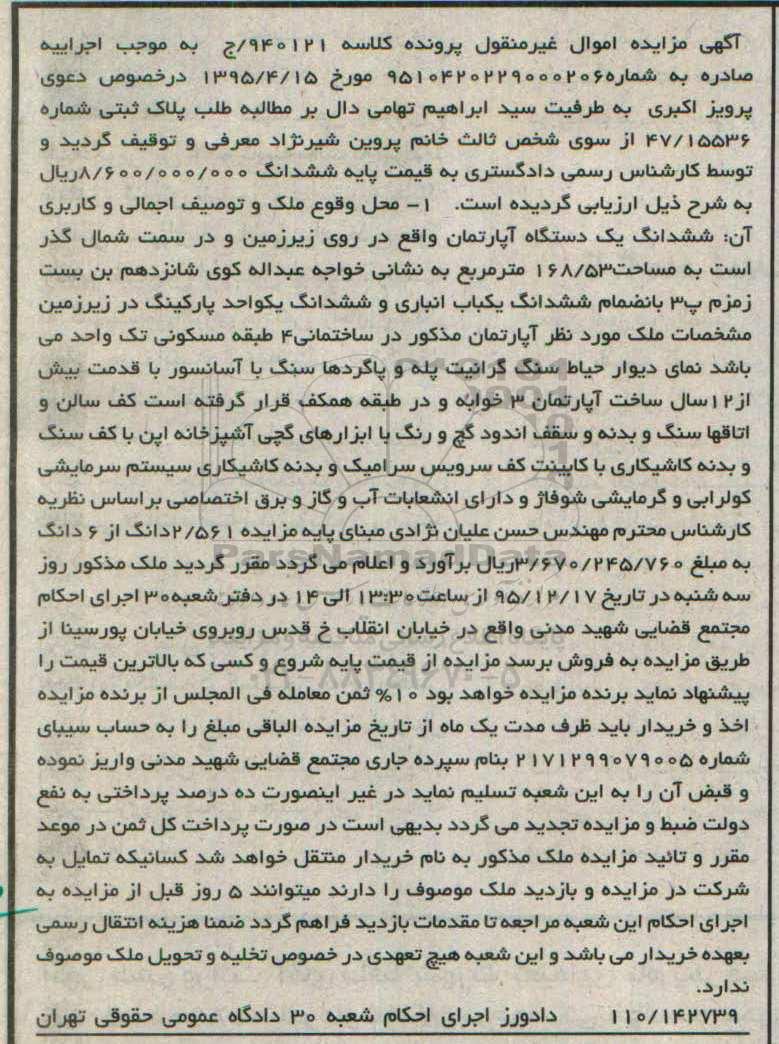 آگهی مزایده اموال غیرمنقول پرونده کلاسه ۹۴۰۱۲۱/ج به موجب اجراییه
صادره به شماره۹۵۱۰۴۲۰۲۲۹۰۰۰۲۰۶ مورخ ۱۳۹۵/۴/۱۵ درخصوص دعوی
پرویز اکبری به طرفیت سید ابراهیم تهامی دال بر مطالبه طلب پلاک ثبتی شماره
۴۷/۱۵۵۳۶ از سوی شخص ثالث خانم پروین شیرنژاد معرفی و توقیف گردید و
توسط کارشناس رسمی دادگستری به قیمت پایه ششدانگ ۸/۶۰۰/۰۰۰/۰۰۰ریال
به شرح ذیل ارزیابی گردیده است. ۱- محل وقوع ملک و توصیف اجمالی و کاربری
آن: ششدانگ یک دستگاه آپارتمان واقع در روی زیرزمین و در سمت شمال گذر
است به مساحت۱۶۸/۵۳ مترمربع به نشانی خواجه عبداله کوی شانزدهم بن بست
زمزم پ۳ بانضمام ششدانگ یکباب انباری و ششدانگ یکواحد پارکینگ در زیرزمین
مشخصات ملک مورد نظر آپارتمان مذکور در ساختمانی۴ طبقه مسکونی تک واحد می
باشد نمای دیوار حیاط سنگ گرانیت پله و پاگردها سنگ با آسانسور با قدمت بیش
از۱۲سال ساخت آپارتمان ۳ خوابه و در طبقه همکف قرار گرفته است کف سالن و
اتاقها سنگ و بدنه و سقف اندود گچ و رنگ با ابزارهای گچی آشپزخانه اپن با کف سنگ
و بدنه کاشیکاری با کابینت کف سرویس سرامیک و بدنه کاشیکاری سیستم سرمایشی
کولرابی و گرمایشی شوفاژ و دارای انشعابات آب و گاز و برق اختصاصی براساس نظریه
کارشناس محترم مهندس حسن علیان نژادی مبنای پایه مزایده ۲/۵۶۱دانگ از ۶ دانگ
به مبلغ ۳/۶۷۰/۲۴۵/۷۶۰ریال برآورد و اعلام می گردد مقرر گردید ملک مذکور روز
سه شنبه در تاریخ ۹۵/۱۲/۱۷ از ساعت۱۳:۳۰ الی ۱۴ در دفتر شعبه۳۰ اجرای احکام
مجتمع قضایی شهید مدنی واقع در خیابان انقلاب خ قدس روبروی خیابان پورسینا از
طریق مزایده به فروش برسد مزایده از قیمت پایه شروع و کسی که بالاترین قیمت را
پیشنهاد نماید برنده مزایده خواهد بود ۱۰% ثمن معامله فی المجلس از برنده مزایده
اخذ و خریدار باید ظرف مدت یک ماه از تاریخ مزایده الباقی مبلغ را به حساب سیبای
شماره ۲۱۷۱۲۹۹۰۷۹۰۰۵ بنام سپرده جاری مجتمع قضایی شهید مدنی واریز نموده
و قبض آن را به این شعبه تسلیم نماید در غیر اینصورت ده درصد پرداختی به نفع
دولت ضبط و مزایده تجدید می گردد بدیهی است در صورت پرداخت کل ثمن در موعد
مقرر و تائید مزایده ملک مذکور به نام خریدار منتقل خواهد شد کسانیکه تمایل به
شرکت در مزایده و بازدید ملک موصوف را دارند میتوانند ۵ روز قبل از مزایده به
اجرای احکام این شعبه مراجعه تا مقدمات بازدید فراهم گردد ضمنا هزینه انتقال رسمی
بعهده خریدار می باشد و این شعبه هیچ تعهدی در خصوص تخلیه و تحویل ملک موصوف
ندارد.
۱۱۰/۱۴۲۷۳۹ دادورز اجرای احکام شعبه ۳۰ دادگاه عمومی حقوقی تهران
ParsNamadData